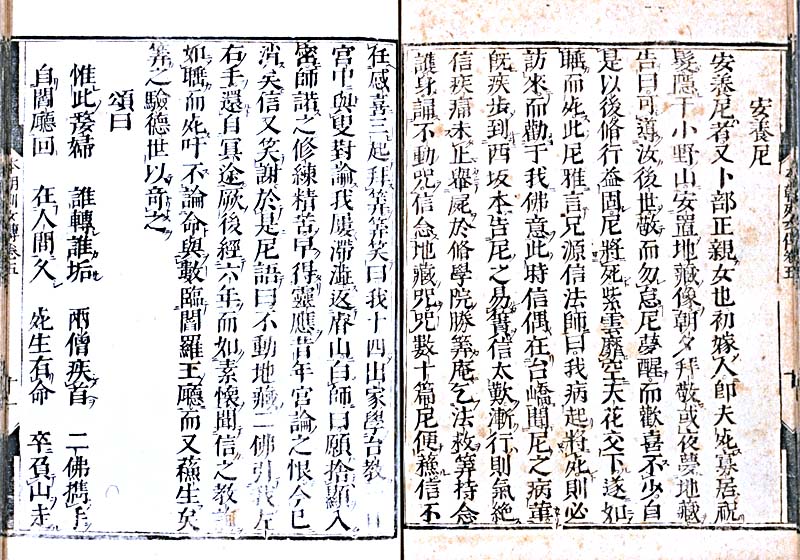 安養尼
安養尼者又卜部正親女也初嫁人卽夫死寡居祝
髮隱于小野山安置地藏像朝夕拜敬或夜夢地藏
告曰可導汝後世敬而勿怠尼夢醒而歡喜不少自
是以後脩行益固尼將死紫雲靡空天花交下遂如
睡而死此尼雅言兄源信法師曰我病起將死則必
訪來而勸于我佛意此時信偶在台嶠聞尼之病革
旣疾步到西坂本告尼之易簀信太歎漸行則氣絕
信疾痛未正舉屍於脩學院勝筭庵乞法救筭持念
護身誦不動咒信念地藏咒咒數十篇尼便蘇信不
在感喜三起拜筭筭笑曰我十四出家學台教
宮中與叟對論我屢滯澁返睿山白師曰願捨顯入
密師諾之修練精苦早得靈應昔年宮論之恨今已
消矣信又笑謝於是尼語曰不動地藏二佛引我左
右手還自冥途厥後經六年而如素懷聞信之教
如睡而死吁不論命與數臨閻羅王廳而又蘇生矣
筭之驗德世以奇之
頌曰
惟此嫠婦 誰轉誰垢 兩僧疾首 二佛携手
自閻廳回 在人間久 死生有命 卒召山